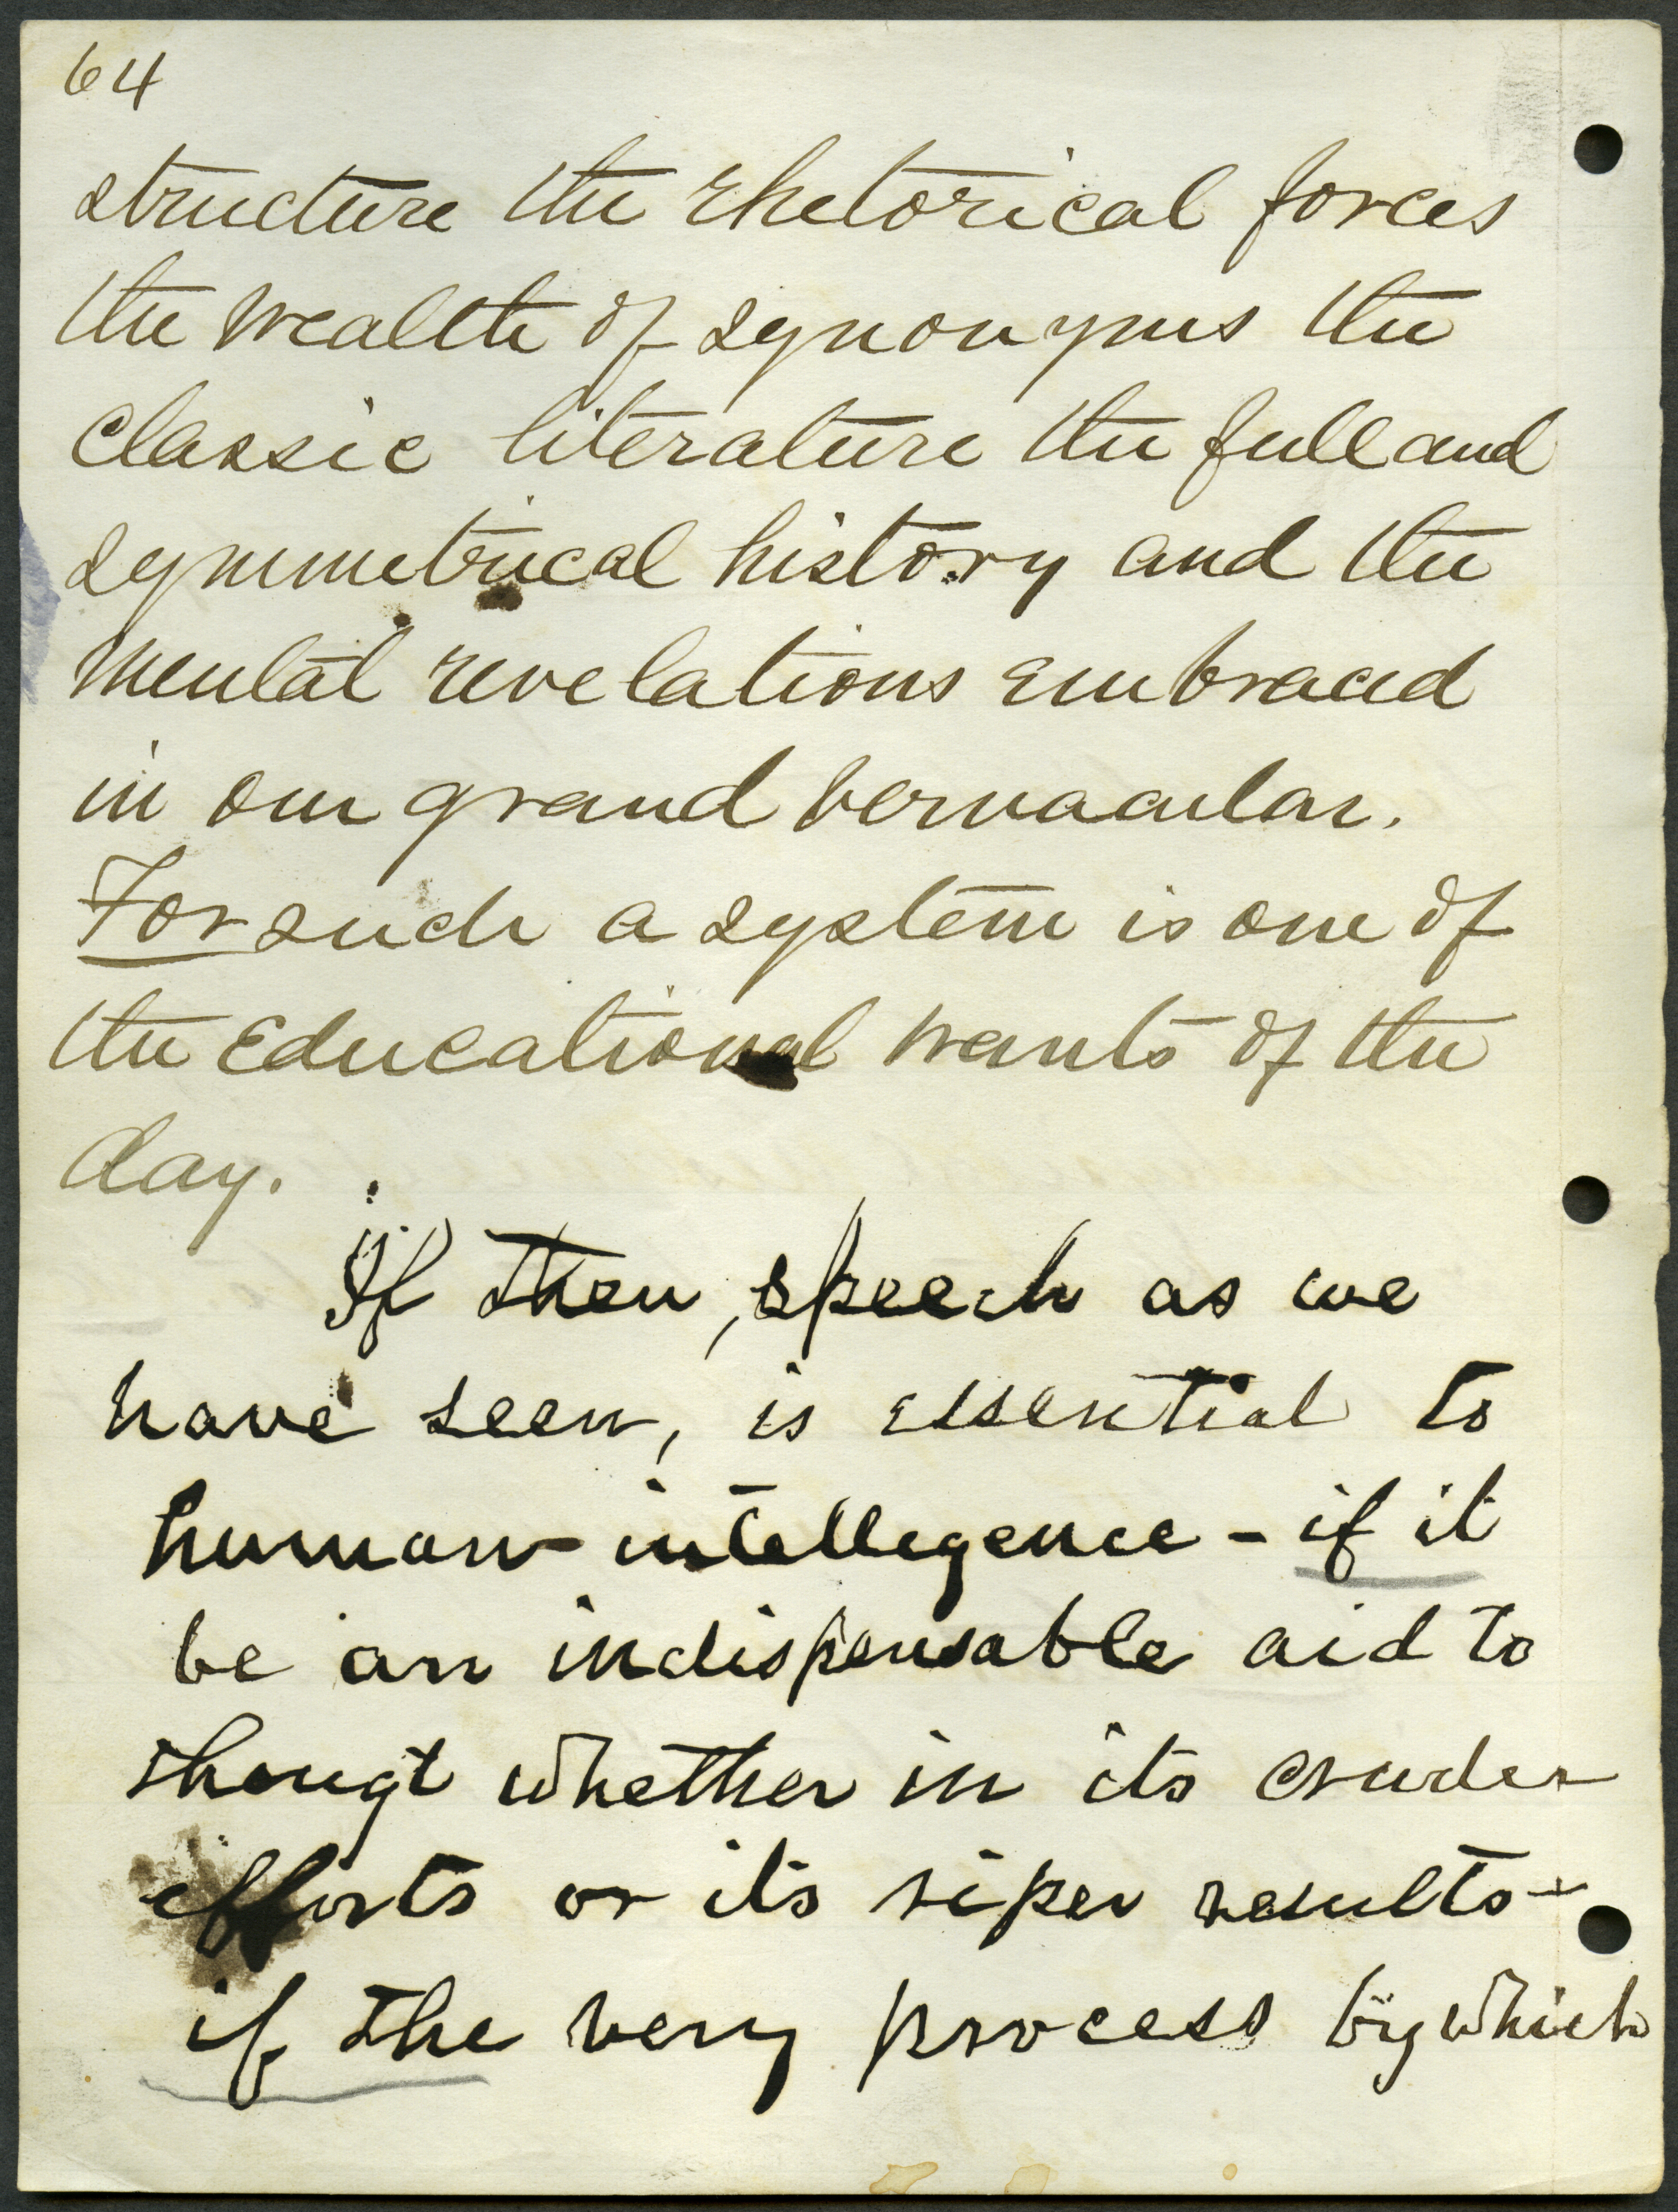 64
structure the rhetorical forces
the wealth of synonyms the
classic literature the full and
symmetrical history and the
mental revelations embraced
in our grand vernacular.
For such a system is one of
the Educational wants of the
day.
If then, speech as we
have seen, is essential to
human intellegence - if it
be an indispensable aid to
thougt whether in its cruder
efforts or its riper results -
if the very process by which